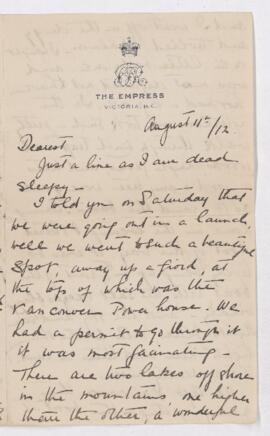 THE EMPRESS
VICTORIA, B.C.
August 11th/12.
Dearest
Just a line as I am dead
sleepy —
I told you on Saturday that
we were going out in a launch,
well we went to such a beautiful
spot, away up a fiord, at
the top of which was the
Vancouver Power house. We
had a permit to go through it
it was most fascinating —
There are two lakes off shore
in the mountains, one higher
than the other, a wonderful